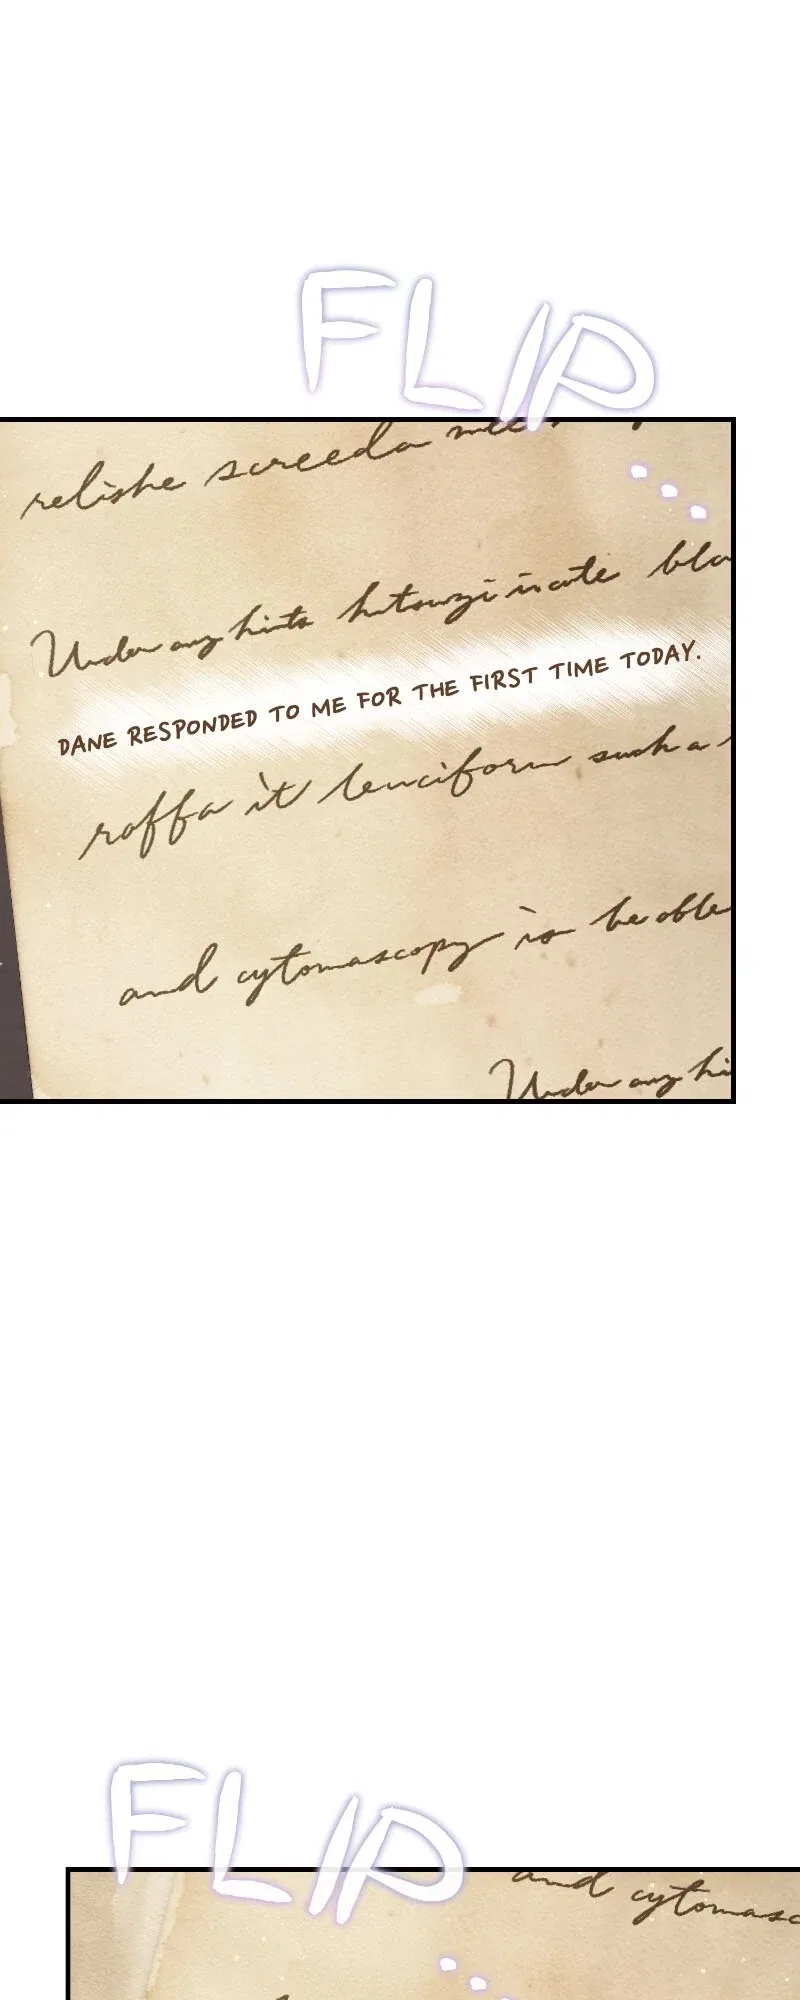 FLIP
relishe screeda
...
Under any hints hutsuzi inate
DANE RESPONDED TO ME FOR THE FIRST TIME TODAY.
raffa it leuciform such a
and cytomascopy is be able
Under any hi
FLIP
and cytomasc
...